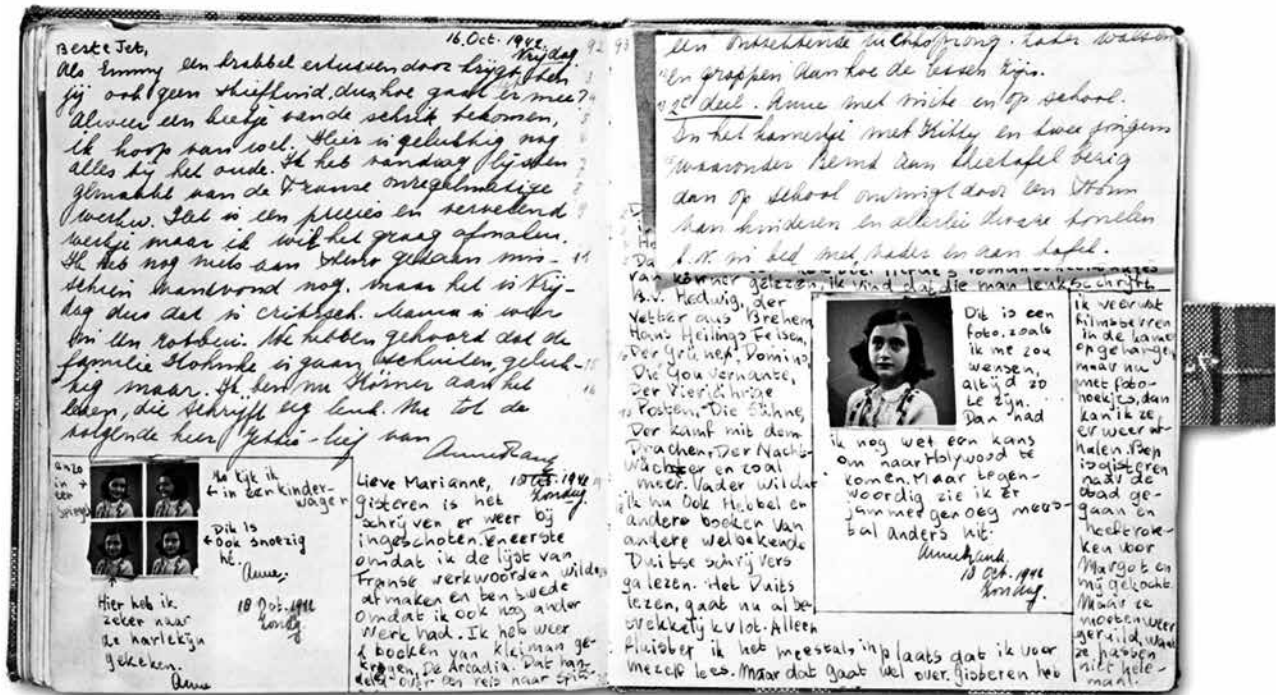 16. Oct. 1942
Vrijdag.
92 93
Beste Jet,
Als Emmy een krabbel ertussen door krijgt, ben
jij ook geen stiefkind, dus hoe gaat er mee?
Alweer een beetje van de schrik bekomen,
ik hoop van wel. Hier is gelukkig nog
alles bij het oude. Ik heb vandaag lijsten
gemaakt van de Franse onregelmatige
werkw. Het is een precies en vervelend
werkje maar ik wil het graag afmaken.
Ik heb nog niets aan Steno gedaan mis-
schien vanavond nog. maar het is Vrij-
dag dus dat is critisch. Mama is weer
in een
familie is gaan schuilen, geluk-
kig maar. Ik ben nu Körner aan het
lezen, die schrijft erg leuk. Nu tot de
volgende keer Jettie-lief van
Anne Frank
anzo
in +
een
spiegel
Nu kijk ik
← in een kinder-
wagen
Dit is
← ook snoezig
hè.
Anne.
Hier heb ik
zeker naar
de harlekijn
gekeken.
Anne
18 Oct. 1942
Zondag
Lieve Marianne,
18 Oct. 1942
Zondag.
gisteren is het
schrijven er weer bij
ingeschoten. Teneerste
omdat ik de lijst van
Franse werkwoorden wilde
afmaken en ten twede
omdat ik ook nog ander
werk had. Ik heb weer
2 boeken van Kleiman ge-
kregen, De Arcadia. Dat han-
deld over een reis naar Spits-
een ontzettende luchtsprong. Later walsen
en grappen dan hoe de lessen zijn.
2e deel. Anne met visite en op school.
In het kamertje met Kitty en twee jongens
waaronder Bernd aan theetafel bezig
dan op school omringt door een storm
van kinderen en allerlei dwaze tonelen
b.v. in bed met vader en aan tafel.
van Körner gelezen, ik vind dat die man leuk schrijft
B.v. Hedwig, der
Vetter aus Brehem
Hans Heilings Felsen,
Der Grüne Domino,
Die Gouvernante,
Der Vierjährige
Posten, Die Sühne,
Der Kamf mit dem
Drachen, Der Nacht-
wächter en zoal
meer. Vader wil dat
ik nu ook Hebbel en
andere boeken van
andere welbekende
Duitse schrijvers
ga lezen. Het Duits
lezen, gaat nu al be-
trekkelijk vlot. Alleen
fluister ik het meestal in plaats dat ik voor
mezelf lees. Maar dat gaat wel over. Gisteren heb
Dit is een
foto, zoals
ik me zou
wensen,
altijd zo
te zijn.
Dan had
ik nog wel een kans
om naar Holywood te
komen. Maar tegen-
woordig zie ik er
jammer genoeg mees-
tal anders uit.
Anne Frank.
18 Oct. 1942
Zondag.
ik veer wat
filmsterren
in de kamer
opgehangen
maar nu
met foto-
hoekjes, dan
kan ik ze
er weer af-
halen. Bep
is gisteren
naar de
stad ge-
gaan en
heeft rok-
ken voor
Margot en
mij gekocht.
Maar ze
moeten weer
geruild, want
ze passen
niet hele-
maal.